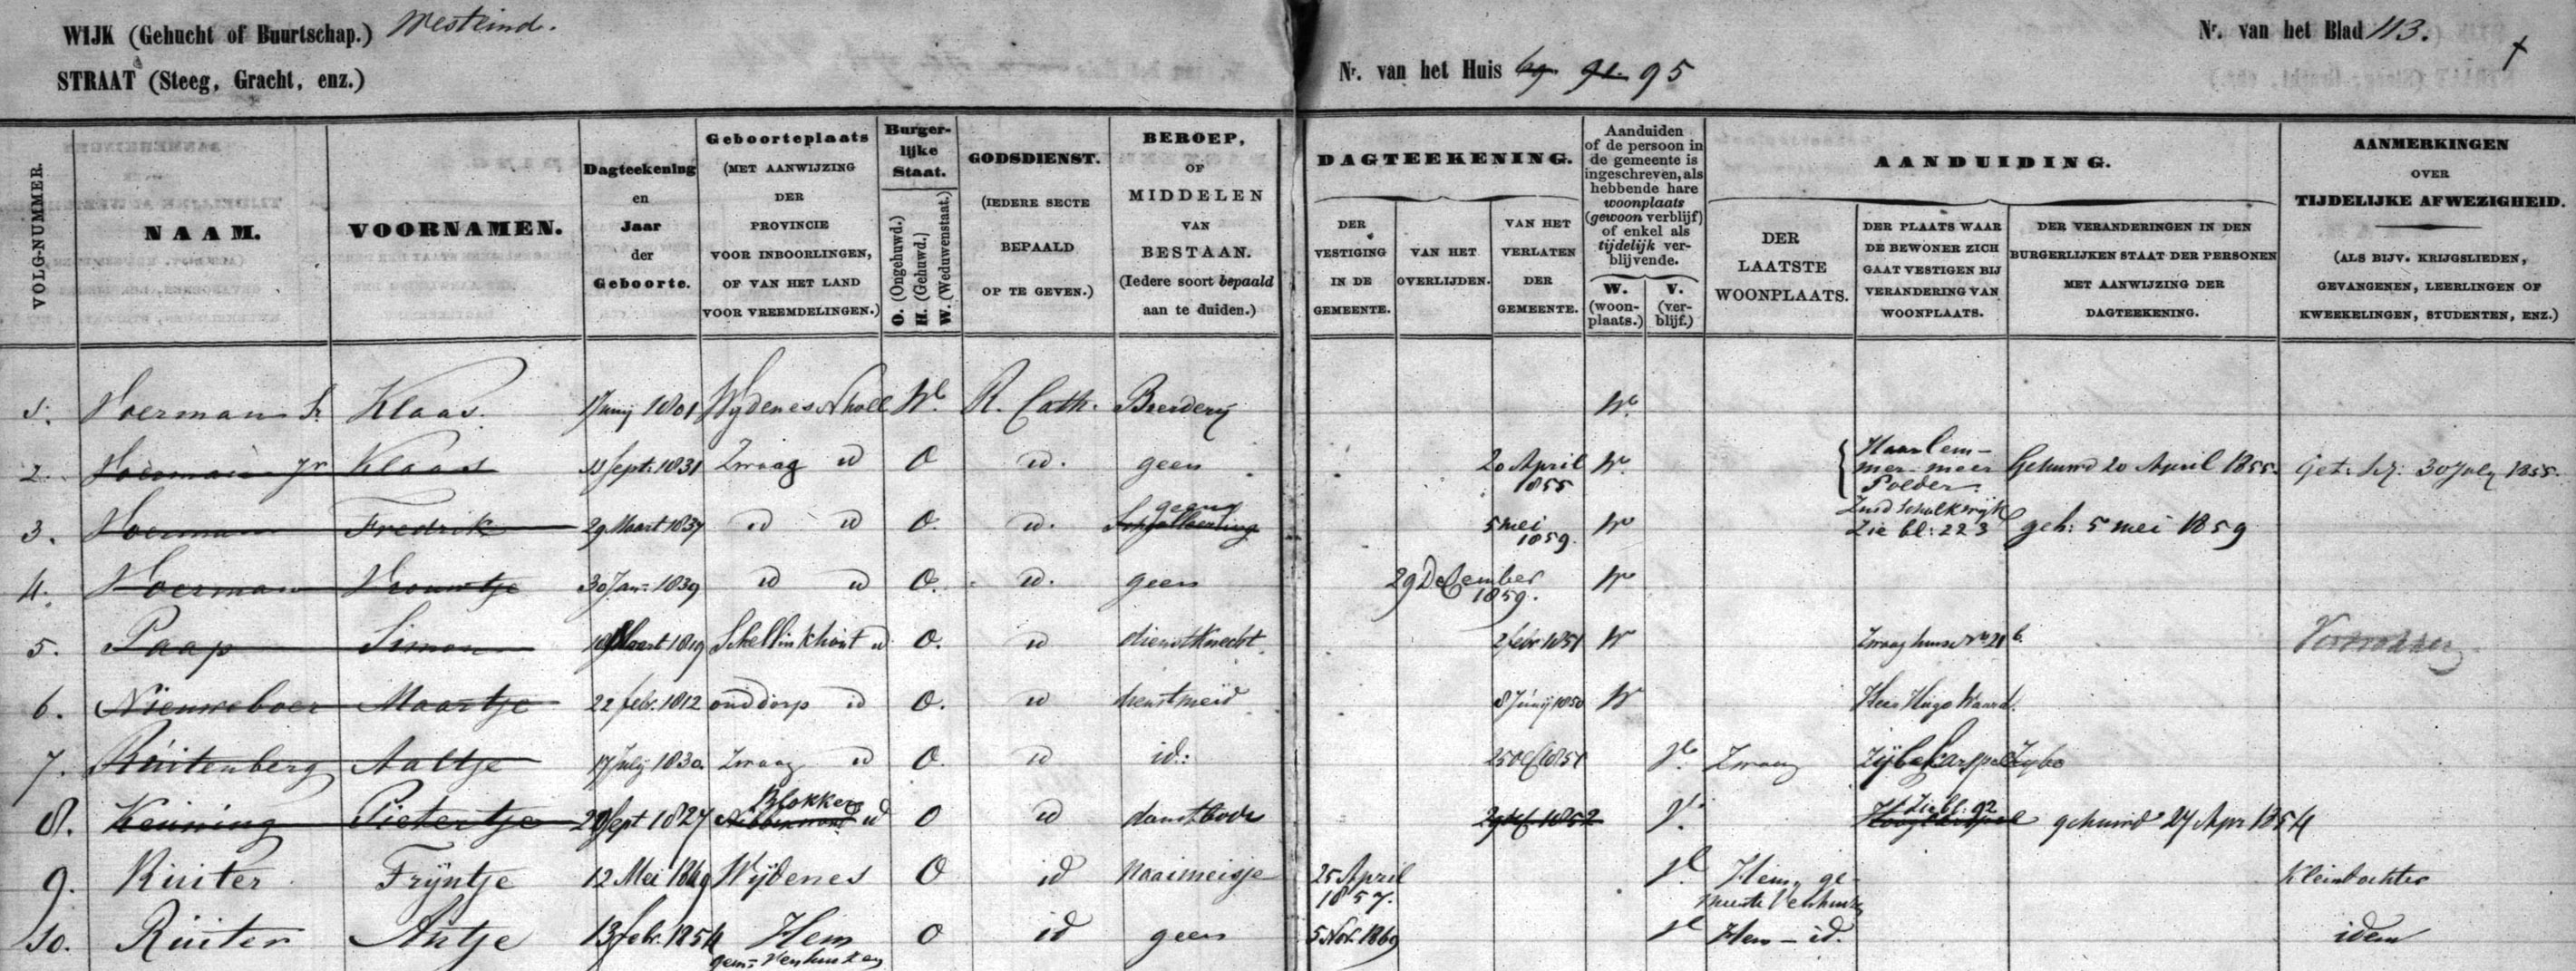 WIJK (Gehucht of Buurtschap.) Westeind.
STRAAT (Steeg, Gracht, enz.)
Nr. van het Huis 95
Nr. van het Blad 113.
VOLG-NUMMER.
NAAM.
VOORNAMEN.
Dagteekening
en
Jaar
der
Geboorte.
Geboorteplaats
(MET AANWIJZING
DER
PROVINCIE
VOOR INBOORLINGEN,
OF VAN HET LAND
VOOR VREEMDELINGEN.)
Burger-
lijke
Staat.
O. (Ongehuwd.)
H. (Gehuwd.)
W. (Weduwenstaat.)
GODSDIENST.
(IEDERE SECTE
BEPAALD
OP TE GEVEN.)
BEROEP,
OF
MIDDELEN
VAN
BESTAAN.
(Iedere soort bepaald
aan te duiden.)
DAGTEEKENING.
DER
VESTIGING
IN DE
GEMEENTE.
VAN HET
OVERLIJDEN.
VAN HET
VERLATEN
DER
GEMEENTE.
Aanduiden
of de persoon in
de gemeente is
ingeschreven, als
hebbende hare
woonplaats
(gewoon verblijf)
of enkel als
tijdelijk ver-
blijvende.
W.
(woon-
plaats.)
V.
(ver-
blijf.)
AANDUIDING.
DER
LAATSTE
WOONPLAATS.
DER PLAATS WAAR
DE BEWONER ZICH
GAAT VESTIGEN BIJ
VERANDERING VAN
WOONPLAATS.
DER VERANDERINGEN IN DEN
BURGERLIJKEN STAAT DER PERSONEN
MET AANWIJZING DER
DAGTEEKENING.
AANMERKINGEN
OVER
TIJDELIJKE AFWEZIGHEID.
(ALS BIJV. KRIJGSLIEDEN,
GEVANGENEN, LEERLINGEN OF
KWEEKELINGEN, STUDENTEN, ENZ.)
1. Voerman Sr Klaas. 1 Junij 1801 Wydenes NHoll W. R. Cath. W.
2. Voerman Jr Klaas 13 Sept: 1831 Zwaag id O id. geen 20 April 1855 W. Haarlem-
mer-meer
Polder. Gehuwd 20 April 1855. get: 30 July 1855.
3. Voerman Fredrik 29 Maart 1837 id id O. id. geene 5 mei 1859. W Zuid Schalkwijk
Zie bl: 223 geh: 5 mei 1859
4. Voerman Vrouwtje 30 Jan: 1839 id id O. id. geen 29 December 1859. W
5. Paap Simon Maart 1819 Schellinkhout id O. id dienstknecht 2 febr 1851 W Zwaag
6. Nieuweboer Maartje 22 febr. 1812 ouddorp id O. id dienstmeid 8 Junij 1850 W Heer Hugo Waard.
7. Ruitenberg Aaltje 17 July 1830 Zwaag id O. id id: Zwaag
8. Keuning Pietertje Sept 1827 Blokker id O id dienstbode Zie bl: 92 gehuwd 27 Apr 1854
9. Ruiter Trijntje 12 Mei 1849 Wijdenes O id Naaimeisje 25 April 1857. V. Hem, ge-
meente Venhuizen Kleindochter
10. Ruiter Antje 13 febr. 1854 Hem
gem: Venhuizen O id geen 5 Nov. 1860 V Hem - id. idem